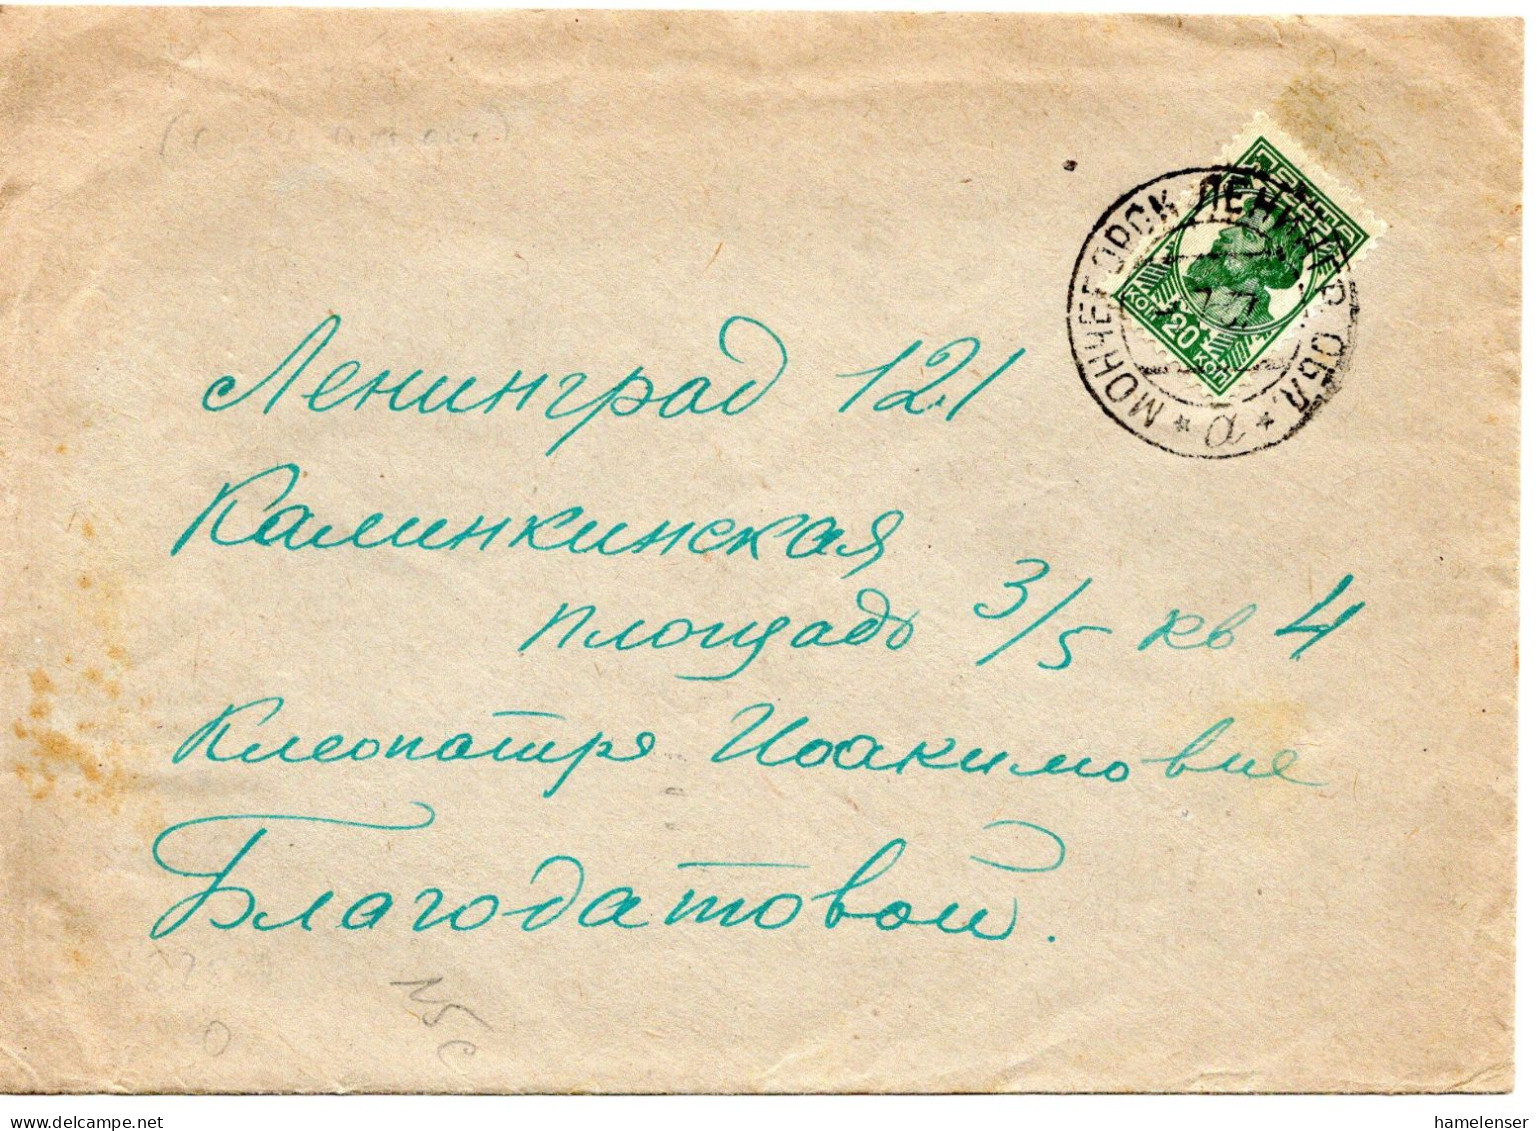 МОНЧЕГОРСК ЛЕНИНГР. ОБЛ.
а
КОП 20 КОП
Ленинград 121
Калинкинская
площадь 3/5 кв 4
Клеопатре Иоакимовне
Благодатовой.
15
с
hamelenser
www.delcampe.net